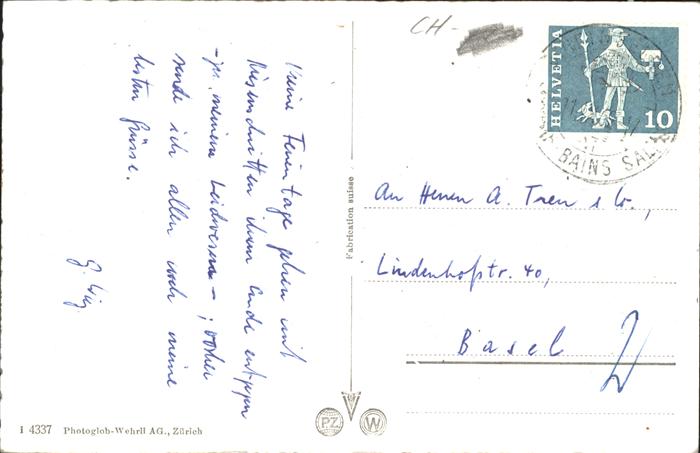 CH-
HELVETIA
10
BAINS
Meine Ferientage gehen mit
Riesenschritten ihrem Ende entgegen
- zu meinem Leidwesen - ; vorher
sende ich allen noch meine
besten Grüsse.
An Herren A. Tren & Co.,
Lindenhofstr. 40,
Basel
Fabrication suisse
I 4337 Photoglob-Wehrli AG., Zürich
PZ
W